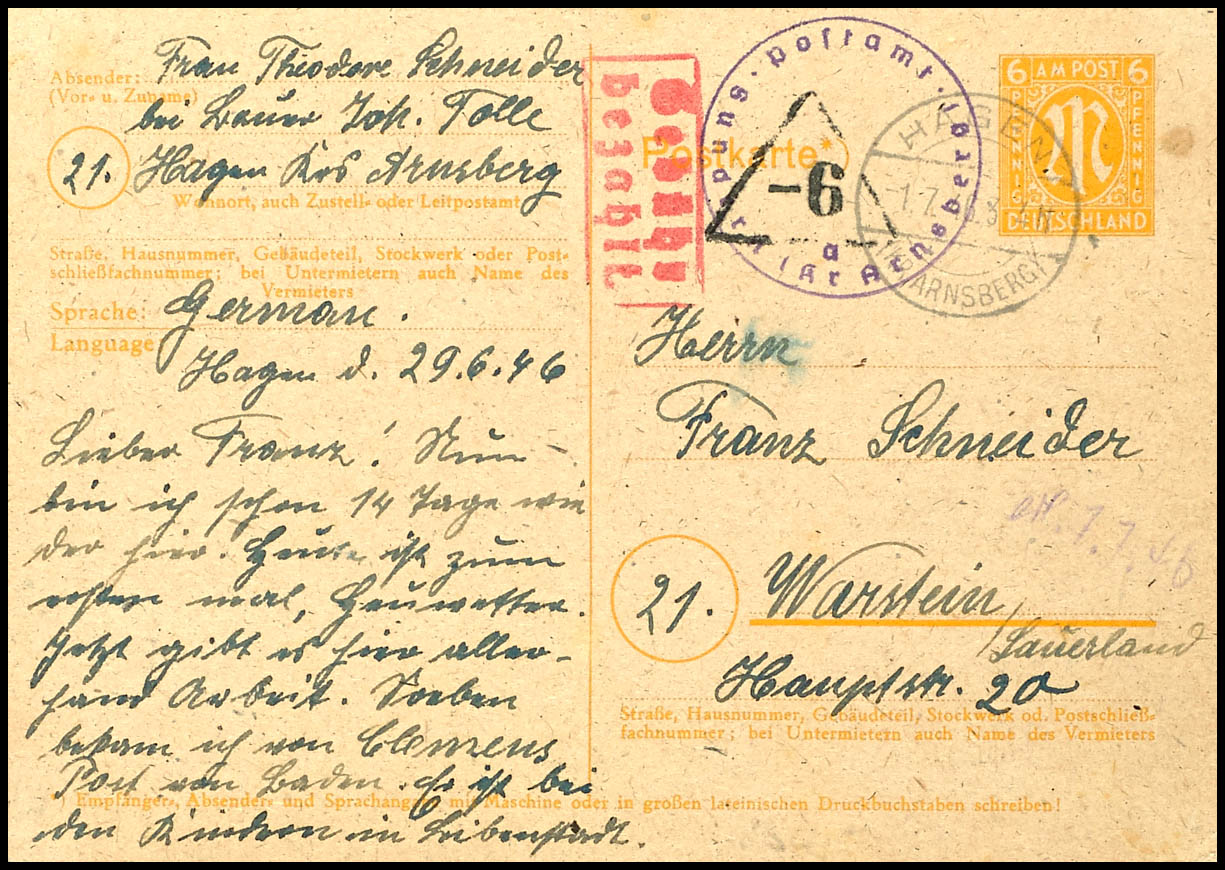 Absender: Frau Theodore Schneider
(Vor- u. Zuname)
bei Bauer Joh. Tolle
21. Hagen Krs Arnsberg
Wohnort, auch Zustell- oder Leitpostamt
Straße, Hausnummer, Gebäudeteil, Stockwerk oder Post-
schließfachnummer; bei Untermietern auch Name des
Vermieters
Sprache: German.
Language
Hagen d. 29.6.46
Lieber Franz! Nun
bin ich schon 14 Tage wie
der hier. Heute ist zum
ersten mal, Heuwetter.
Jetzt gibt es hier aller-
hand Arbeit. Soeben
bekam ich von Clemens
Post von Baden. Er ist bei
den Kindern in Leibenstadt.
Gebühr
bezahlt
Postkarte*
-6
a
HAGEN
(KR. ARNSBERG)
6 AM POST 6
PFENNIG PFENNIG
M
DEUTSCHLAND
Herrn
Franz Schneider
erh. 1.7.46
21. Warstein
/Sauerland
Hauptstr. 20
Straße, Hausnummer, Gebäudeteil, Stockwerk od. Postschließ-
fachnummer; bei Untermietern auch Name des Vermieters
*) Empfänger-, Absender- und Sprachangabe mit Maschine oder in großen lateinischen Druckbuchstaben schreiben!